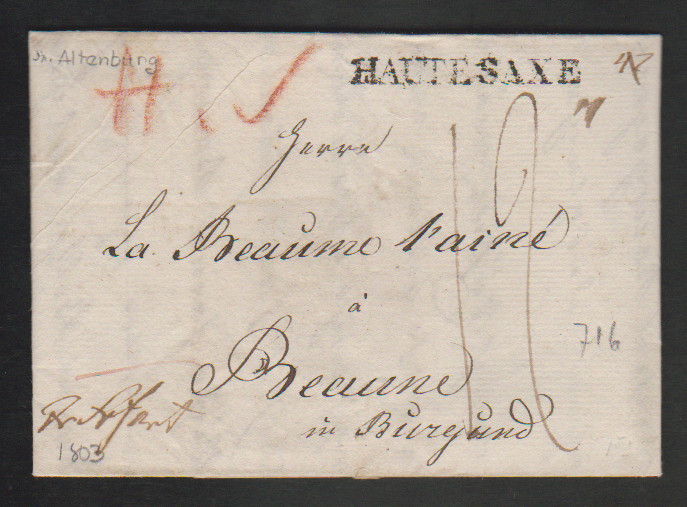 Altenburg
H. S
HAUTE SAXE
Herrn
La Beaume l'ainé
à
Beaune
in Burgund
12
716
1803